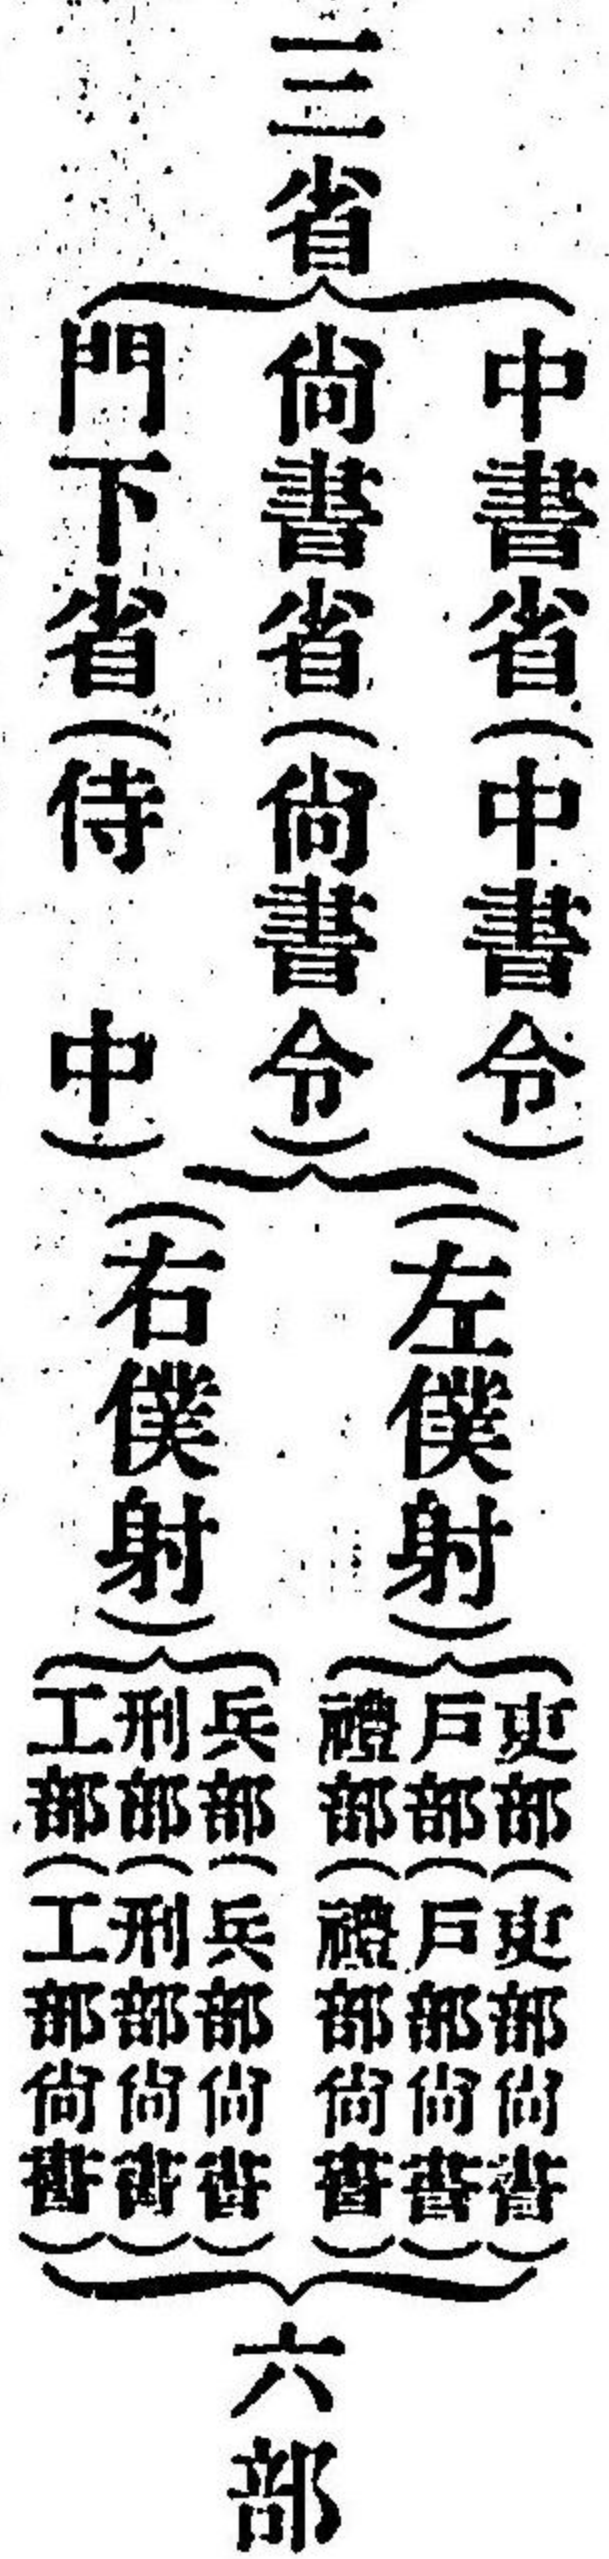 三省
中書省(中書令)
尙書省(尙書令)
門下省(侍中)
(左僕射)
(右僕射)
吏部(吏部尙書)
戶部(戶部尙書)
禮部(禮部尙書)
兵部(兵部尙書)
刑部(刑部尙書)
工部(工部尙書)
六部